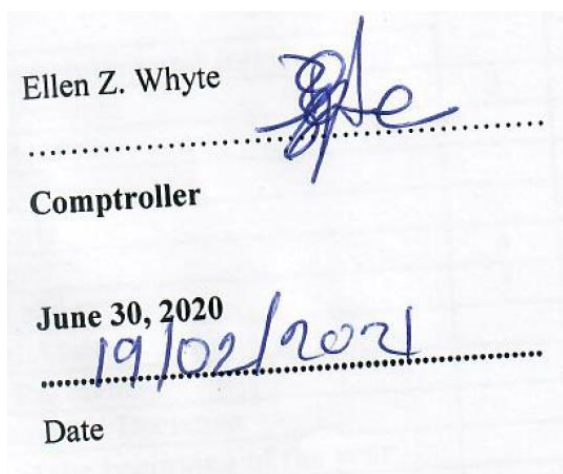 Ellen Z. Whyte
Comptroller
June 30, 2020
19/02/2021
Date